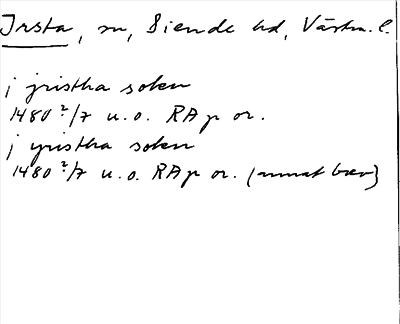 Irsta, sn, Siende hd, Västm. l.
j jristha soken
1480 2/7 u.o. RAp or.
j yristha soken
1480 2/7 u.o. RAp or. (annat brev)